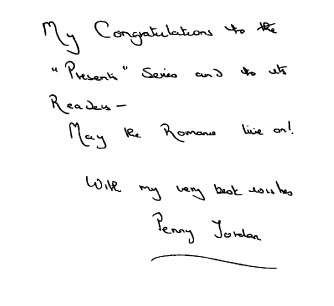 My Congratulations to the
"Presents" Series and to its
Readers —
May the Romance live on!
With my very best wishes
Penny Jordan